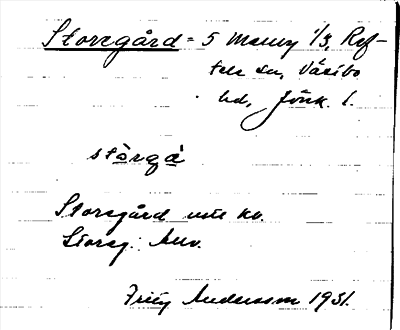 Storegård = 5 Marny 1/3, Ref-
tele sn, Västbo
hd, Jönk. l.
stòrgà
Storegård utt kv.
Storeg: Anv.
Fritz Andersson 1931.